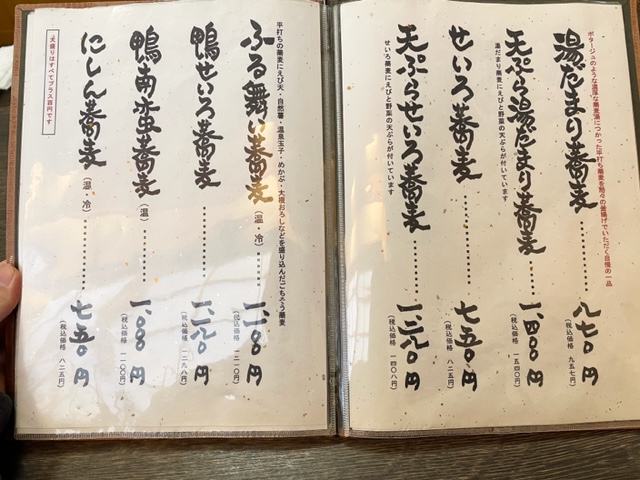 ポタージュのような濃厚な蕎麦湯につかった平打ち蕎麦を熱々の釜揚げでいただく自慢の一品
湯だまり蕎麦………八七〇円
（税込価格 九五七円）
天ぷら湯だまり蕎麦……一、四〇〇円
（税込価格 一五四〇円）
湯だまり蕎麦にえびと野菜の天ぷらが付いています
せいろ蕎麦…………七五〇円
（税込価格 八二五円）
天ぷらせいろ蕎麦……一、二八〇円
（税込価格 一四〇八円）
せいろ蕎麦にえびと野菜の天ぷらが付いています
平打ちの蕎麦にえび天・自然薯・温泉玉子・めかぶ・大根おろしなどを盛り込んだごちそう蕎麦
ふる舞い蕎麦（温・冷）……一、一〇〇円
（税込価格 一二一〇円）
鴨せいろ蕎麦…………一、一八〇円
（税込価格 一二九八円）
鴨南蛮蕎麦（温）………一、〇〇〇円
（税込価格 一一〇〇円）
にしん蕎麦（温・冷）………七五〇円
（税込価格 八二五円）
大盛りはすべてプラス百円です